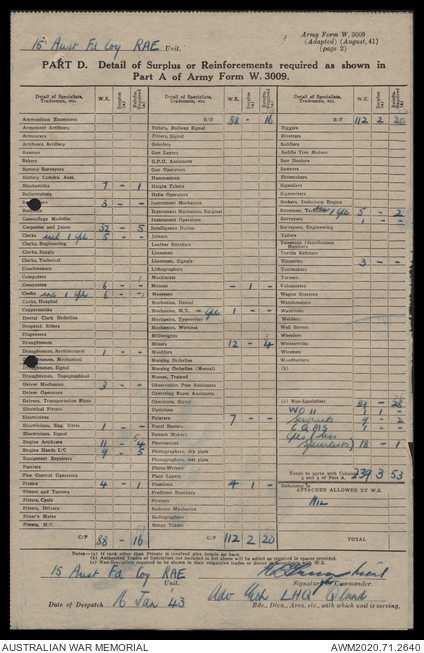 Army Form W. 3009
(Adapted) (August, 41)
(page 2)
15 Aust Fd Coy RAE Unit.
PART D. Detail of Surplus or Reinforcements required as shown in
Part A of Army Form W. 3009.
Detail of Specialists, Tradesmen, etc. W.E. Surplus (a) Reinfts. Required (a)
Ammunition Examiners
Armament Artificers
Armourers
Artificers, Artillery
Axemen
Bakers
Battery Surveyors
Battery Comdrs. Asst.
Blacksmiths 7 - 1
Boilermakers
3 - -
Camouflage Modeller
Carpenter and Joiner 32 - 5
Clerks incl 1 Cpl 5 - -
Clerks, Engineering
Clerks, Supply
Clerks, Technical
Coachmakers
Computers
Concretors 6 - -
Cooks incl 1 Cpl 6 - -
Cooks, Hospital
Coppersmiths
Dental Clerk Orderlies
Despatch Riders
Dispensers
Draughtsmen
Draughtsmen, Architectural 1 - -
Draughtsmen, Mechanical
Draughtsmen, Signal
Draughtsmen, Topographical
Driver Mechanics 3 - -
Driver Operators
Drivers, Transportation Plant
Electrical Fitters
Electricians
Electricians, Eng. Units 1 - -
Electricians, Signal
Engine Artificers 11 - 4
Engine Hands I/C 9 - 5
Equipment Repairers
Farriers
Fire Control Operators
Fitters 4 - 1
Fitters and Turners
Fitters, Cycle
Fitters, Drivers
Fitter's Mates
Fitters, M.V.
C/F 88 - 16
Detail of Specialists, Tradesmen, etc. W.E. Surplus (a) Reinfts. Required (a)
B/F 88 - 16
Fitters, Railway Signal
Fitters, Signal
Grinders
Gun Layers
G.P.O. Assistants
Gun Operators
Hammermen
Height Takers
Helio Operators
Instrument Mechanics
Instrument Mechanics, Surgical
Instrument Operators
Intelligence Duties
Joiners
Leather Stitchers
Linesmen
Linesmen, Signals
Lithographers
Machinists
Masons - 1 -
Masseurs
Mechanics, Dental
Mechanics, M.T. - Cpl 1 - -
Mechanics, Typewriter
Mechanics, Wireless
Millwrights
Miners 12 - 4
Moulders
Nursing Orderlies
Nursing Orderlies (Mental)
Nurses, Trained
Observation Post Assistants
Operating Room Assistants
Operators, Signal
Opticians
Painters 7 - -
Panel Beaters
Pattern Makers
Pharmacists
Photographers, dry plate
Photographers, wet plate
Photo-Writers
Plate Layers
Plumbers 4 1 -
Predictor Numbers
Printers
Radiator Mechanics
Radiographers
Range Takers
C/F 112 2 20
Detail of Specialists, Tradesmen, etc. W.E. Surplus (a) Reinfts. Required (a)
B/F 112 2 20
Riggers
Rivetters
Saddlers
Saddle Tree Makers
Saw Doctors
Sawyers
Shoemakers
Signallers
Signwriters
Stokers, Stationary Engine
Storemen, 1 Cpl 5 - 2
Surveyors 1 - -
Surveyors, Engineering
Tailors
Telescope Identification Numbers
Textile Refitters
Tinsmiths 3 - -
Toolmakers
Turners
Vulcanizers
Wagon Erectors
Watchmakers
Waterman
Welders
Well Borers
Wheelers
Whitesmiths
Wiremen
Woodturners
(b)
(c) Non-Specialists 89 - 28
WO II 1 1 -
Servants 9 - 2
CQMS 1 - -
Cpls (less
specialists) 18 - 1
Totals to agree with Columns 3 and 4 of Part A. 239 3 53
Deficiency in
ATTACHED ALLOWED BY W.E.
Nil
TOTAL
Notes—(a) If rank other than Private is involved give details on back.
(b) Authorized Trades or Specialists not included in list above will be added as required in spaces provided.
(c) Non-Specialists required to be shown in their respective trades or duties in accordance with W.E.
15 Aust Fd Coy RAE
Unit.
Signature of Commander.
Date of Despatch 16 Jan 43
Adv Ech LHQ Qland
Bde., Divn., Area, etc., with which unit is serving.
AUSTRALIAN WAR MEMORIAL
AWM2020.71.2640